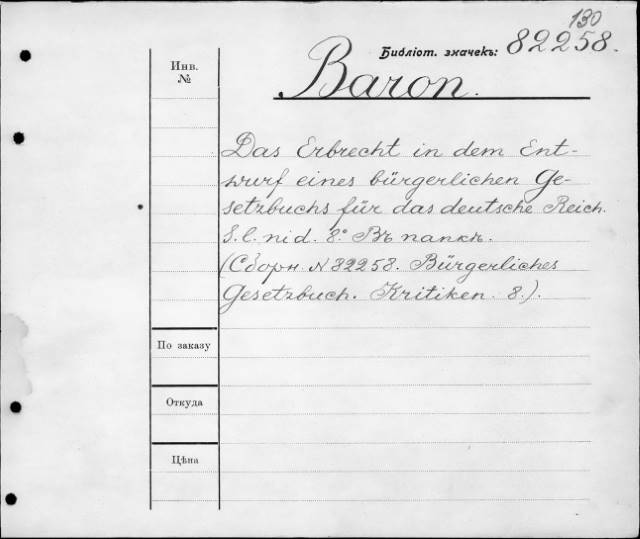 130
Библiот. значекъ: 82258.
Инв.
№
Baron.
Das Erbrecht in dem Ent-
wurf eines bürgerlichen Ge-
setzbuchs für das deutsche Reich.
S.l. ni d. 8.° Въ папкѣ.
(Сборн. N 82258. Bürgerliches
Gesetzbuch. Kritiken. 8.).
По заказу
Откуда
Цѣна